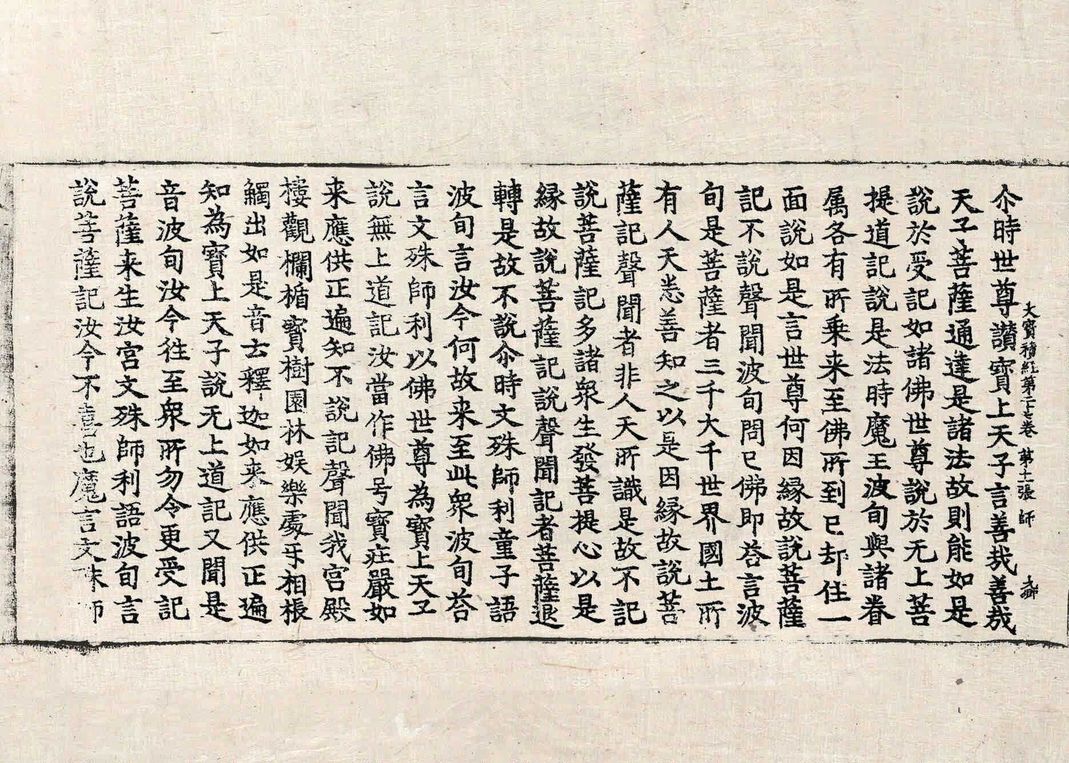 大寶積経第卷 第張 師
尒時世尊讚寶上天子言善哉善哉
天子菩薩通達是諸法故則能如是
說於受記如諸佛世尊說於无上菩
提道記說是法時魔王波旬與諸眷
属各有所乘来至佛所到已却住一
面說如是言世尊何因緣故說菩薩
記不說聲聞波旬問已佛即荅言波
旬是菩薩者三千大千世界國土所
有人天悉善知之以是因緣故說菩
薩記聲聞者非人天所識是故不記
說菩薩記多諸衆生發菩提心以是
緣故說菩薩記說聲聞記者菩薩退
轉是故不說尒時文殊師利童子語
波旬言汝今何故来至此衆波旬荅
言文殊師利以佛世尊為寶上天子
說無上道記汝當作佛号寶莊嚴如
来應供正遍知不說記聲聞我宮殿
樓觀欄楯寶樹園林娛樂處㸦相棖
觸出如是音士釋迦如来應供正遍
知為寶上天子說无上道記又聞是
音波旬汝今往至衆所勿令更受記
菩薩来生汝宮文殊師利語波旬言
說菩薩記汝今不喜也魔言文殊師